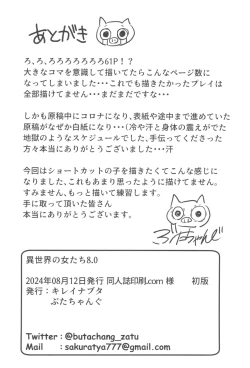 あとがき
ろ、ろ、ろろろろろろ61P！？
大きなコマを意識して描いてたらこんなページ数に
なってしまいました・・・これでも描きたかったプレイは
全部描けてません・・・まだまだですな・・・
しかも原稿中にコロナになり、表紙や途中まで進めていた
原稿がなぜか白紙になり・・・（冷や汗と身体の震えがでた
地獄のようなスケジュールでした、手伝ってくださった
方々本当にありがとうございました・・・汗
今回はショートカットの子を描きたくてこんな感じに
なりました、これもあまり思ったように描けてません。
すみません、もっと描いて練習します。
手に取って頂いた皆さん
本当にありがとうございます。
ぶたちゃんぐ
異世界の女たち8.0
2024年08月12日発行 同人誌印刷.com 様 初版
発行：キレイナブタ
ぶたちゃんぐ
Twitter : @butachang_zatu
Mail : sakuratya777@gmail.com